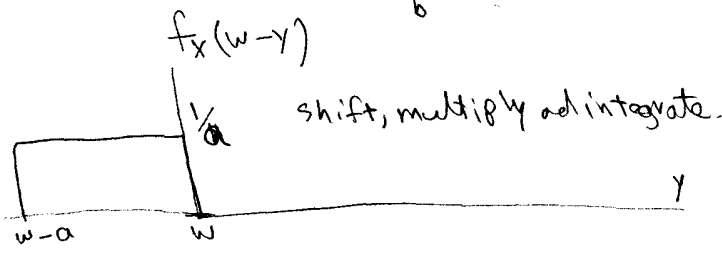 b
fx(w-y)
1/a shift, multiply ad integrate.
y
w-a w